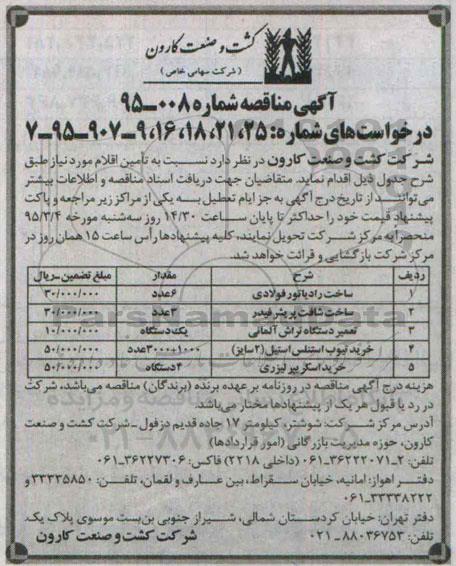 کشت و صنعت کارون
( شرکت سهامی خاص )
آگهی مناقصه شماره ۰۰۸-۹۵
درخواست‌های شماره: ۲۵، ۲۱، ۱۸، ۱۶، ۹-۹۰۷-۹۵-۷
شرکت کشت و صنعت کارون در نظر دارد نسبت به تأمین اقلام مورد نیاز طبق
شرح جدول ذیل اقدام نماید. متقاضیان جهت دریافت اسناد مناقصه و اطلاعات بیشتر
می‌توانند از تاریخ درج آگهی به جز ایام تعطیل به یکی از مراکز زیر مراجعه و پاکت
پیشنهاد قیمت خود را حداکثر تا پایان ساعت ۱۴/۳۰ روز سه‌شنبه مورخه ۹۵/۳/۴
منحصراً به مرکز شرکت تحویل نمایند، کلیه پیشنهادها رأس ساعت ۱۵ همان روز در
مرکز شرکت بازگشایی و قرائت خواهد شد.
ردیف شرح مقدار مبلغ تضمین-ریال
۱ ساخت رادیاتور فولادی ۶ عدد ۳۰/۰۰۰/۰۰۰
۲ ساخت شافت پریشر فیدر ۳ عدد ۳۰/۰۰۰/۰۰۰
۳ تعمیر دستگاه تراش آلمانی یک دستگاه ۱۰/۰۰۰/۰۰۰
۴ خرید تیوب استنلس استیل (۲ سایز) ۱۰۰۰+۳۰۰۰ عدد ۵۰/۰۰۰/۰۰۰
۵ خرید اسکریپر لیزری ۴ دستگاه ۵۰/۰۰۰/۰۰۰
هزینه درج آگهی مناقصه در روزنامه بر عهده برنده (برندگان) مناقصه می‌باشد، شرکت
در رد یا قبول هر یک از پیشنهادها مختار می‌باشد.
آدرس مرکز شرکت: شوشتر، کیلومتر ۱۷ جاده قدیم دزفول - شرکت کشت و صنعت
کارون، حوزه مدیریت بازرگانی (امور قراردادها)
تلفن: ۲-۳۶۲۲۲۰۷۱-۰۶۱ (داخلی ۲۲۱۸) فاکس: ۳۶۲۲۷۳۰۶-۰۶۱
دفتر اهواز: امانیه، خیابان سقراط، بین عارف و لقمان، تلفن: ۳۳۳۳۵۸۵۰ و
۳۳۳۳۸۲۲۲-۰۶۱
دفتر تهران: خیابان کردستان شمالی، شیراز جنوبی بن‌بست موسوی پلاک یک.
تلفن: ۸۸۰۳۶۷۵۳-۰۲۱
شرکت کشت و صنعت کارون